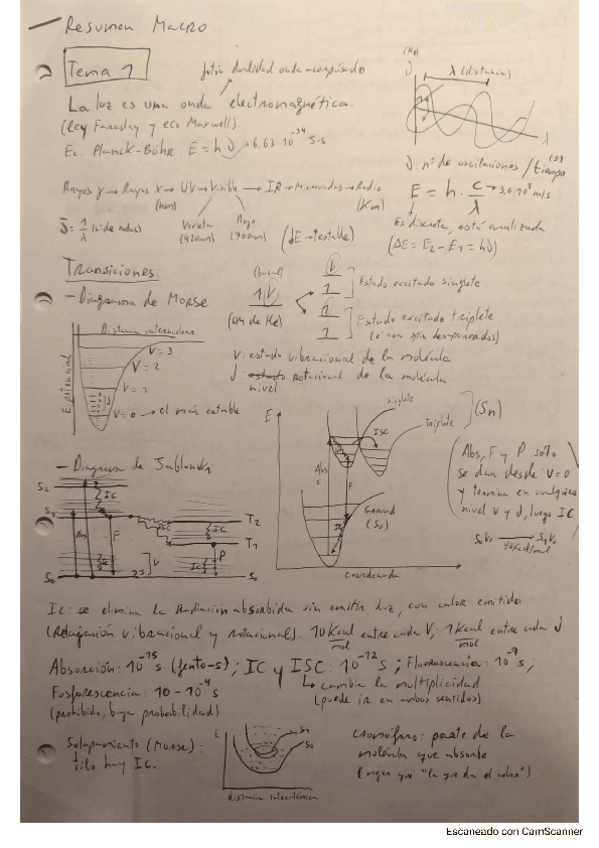 Resumen Macro
Tema 1
fotón dualidad onda
La luz es una onda electromagnética.
(ley Faraday y ecs Maxwell).
Ec. Planck-Böhr: E = hν → 6,63·10⁻³⁴ J·s
(Hz)
ν
λ (distancia)
λ
ν: nº de oscilaciones / tiempo (s)
E = h · c/λ → 3,0·10⁸ m/s
Rayos γ → Rayos X → UV → Visible → IR → Microondas → Radio
(nm)
(Km)
ν̄ = 1/λ (nº de ondas)
Violeta (420nm)
Rojo (700nm)
Es discreta, está cuantizada
(ΔE = E₂ - E₁ = hν)
Transiciones:
- Diagrama de Morse
(basal)
Estado excitado singlete
Estado excitado triplete
(e⁻ con spin desapareados)
V: estado vibracional de la molécula
J: estado rotacional de la molécula
nivel
Distancia internuclear
E. potencial
V = 3
V = 2
V = 1
V = 0 → el más estable
E
singlete
triplete
(Sn)
ISC
Abs
F
Ground
(S₀)
Coordenada
Abs, F y P sólo
se dan desde V=0
y termina en cualquier
nivel V y J, luego IC
- Diagrama de Jablonski
S₂
IC
S₁
ISC
T₂
T₁
Abs
F
IC
P
V
S₀
S₀
IC: se elimina la radiación absorbida sin emitir luz, con calor emitido
(Relajación vibracional y rotacional). 10 Kcal/mol entre cada V; 1 Kcal/mol entre cada J
Absorción: 10⁻¹⁵ s (femto-s); IC y ISC: 10⁻¹² s; Fluorescencia: 10⁻⁹ s;
↳ cambia la multiplicidad
(puede ir en ambos sentidos)
Fosforescencia: 10 - 10⁻⁴ s
(prohibido, baja probabilidad)
Solapamiento (Morse):
sólo hay IC.
E
distancia interatómica
Cromóforo: parte de la
molécula que absorbe
(mejor que "la que da el color")
Escaneado con CamScanner